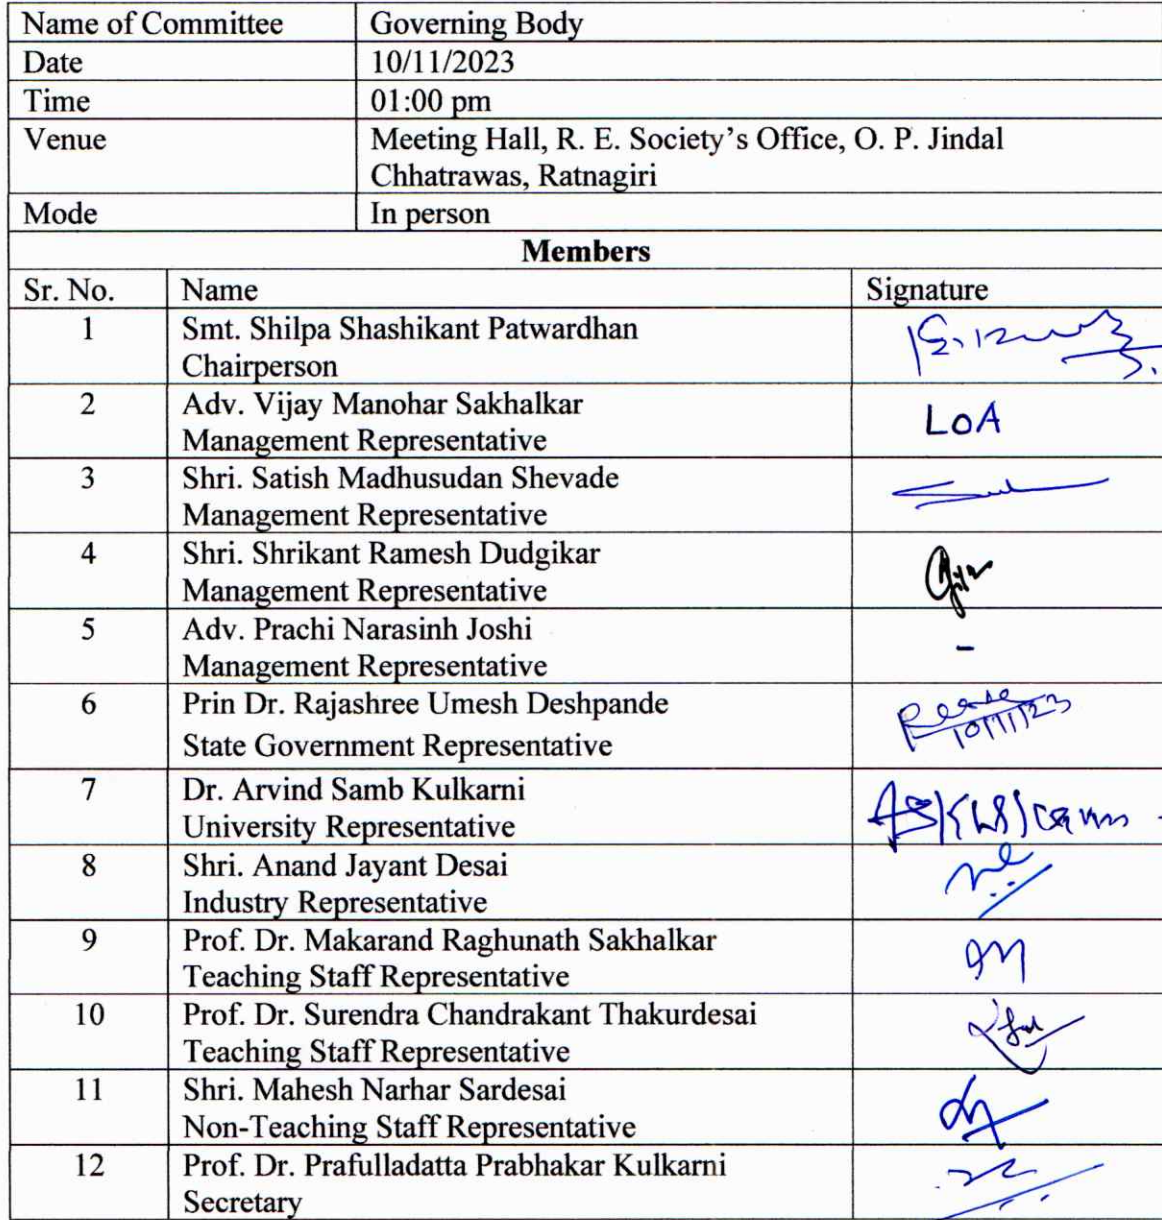 Name of Committee Governing Body
Date 10/11/2023
Time 01:00 pm
Venue Meeting Hall, R. E. Society's Office, O. P. Jindal
Chhatrawas, Ratnagiri
Mode In person
Members
Sr. No. Name Signature
1 Smt. Shilpa Shashikant Patwardhan
Chairperson
2 Adv. Vijay Manohar Sakhalkar LOA
Management Representative
3 Shri. Satish Madhusudan Shevade
Management Representative
4 Shri. Shrikant Ramesh Dudgikar
Management Representative
5 Adv. Prachi Narasinh Joshi -
Management Representative
6 Prin Dr. Rajashree Umesh Deshpande
State Government Representative 10/11/23
7 Dr. Arvind Samb Kulkarni
University Representative
8 Shri. Anand Jayant Desai
Industry Representative
9 Prof. Dr. Makarand Raghunath Sakhalkar
Teaching Staff Representative
10 Prof. Dr. Surendra Chandrakant Thakurdesai
Teaching Staff Representative
11 Shri. Mahesh Narhar Sardesai
Non-Teaching Staff Representative
12 Prof. Dr. Prafulladatta Prabhakar Kulkarni
Secretary